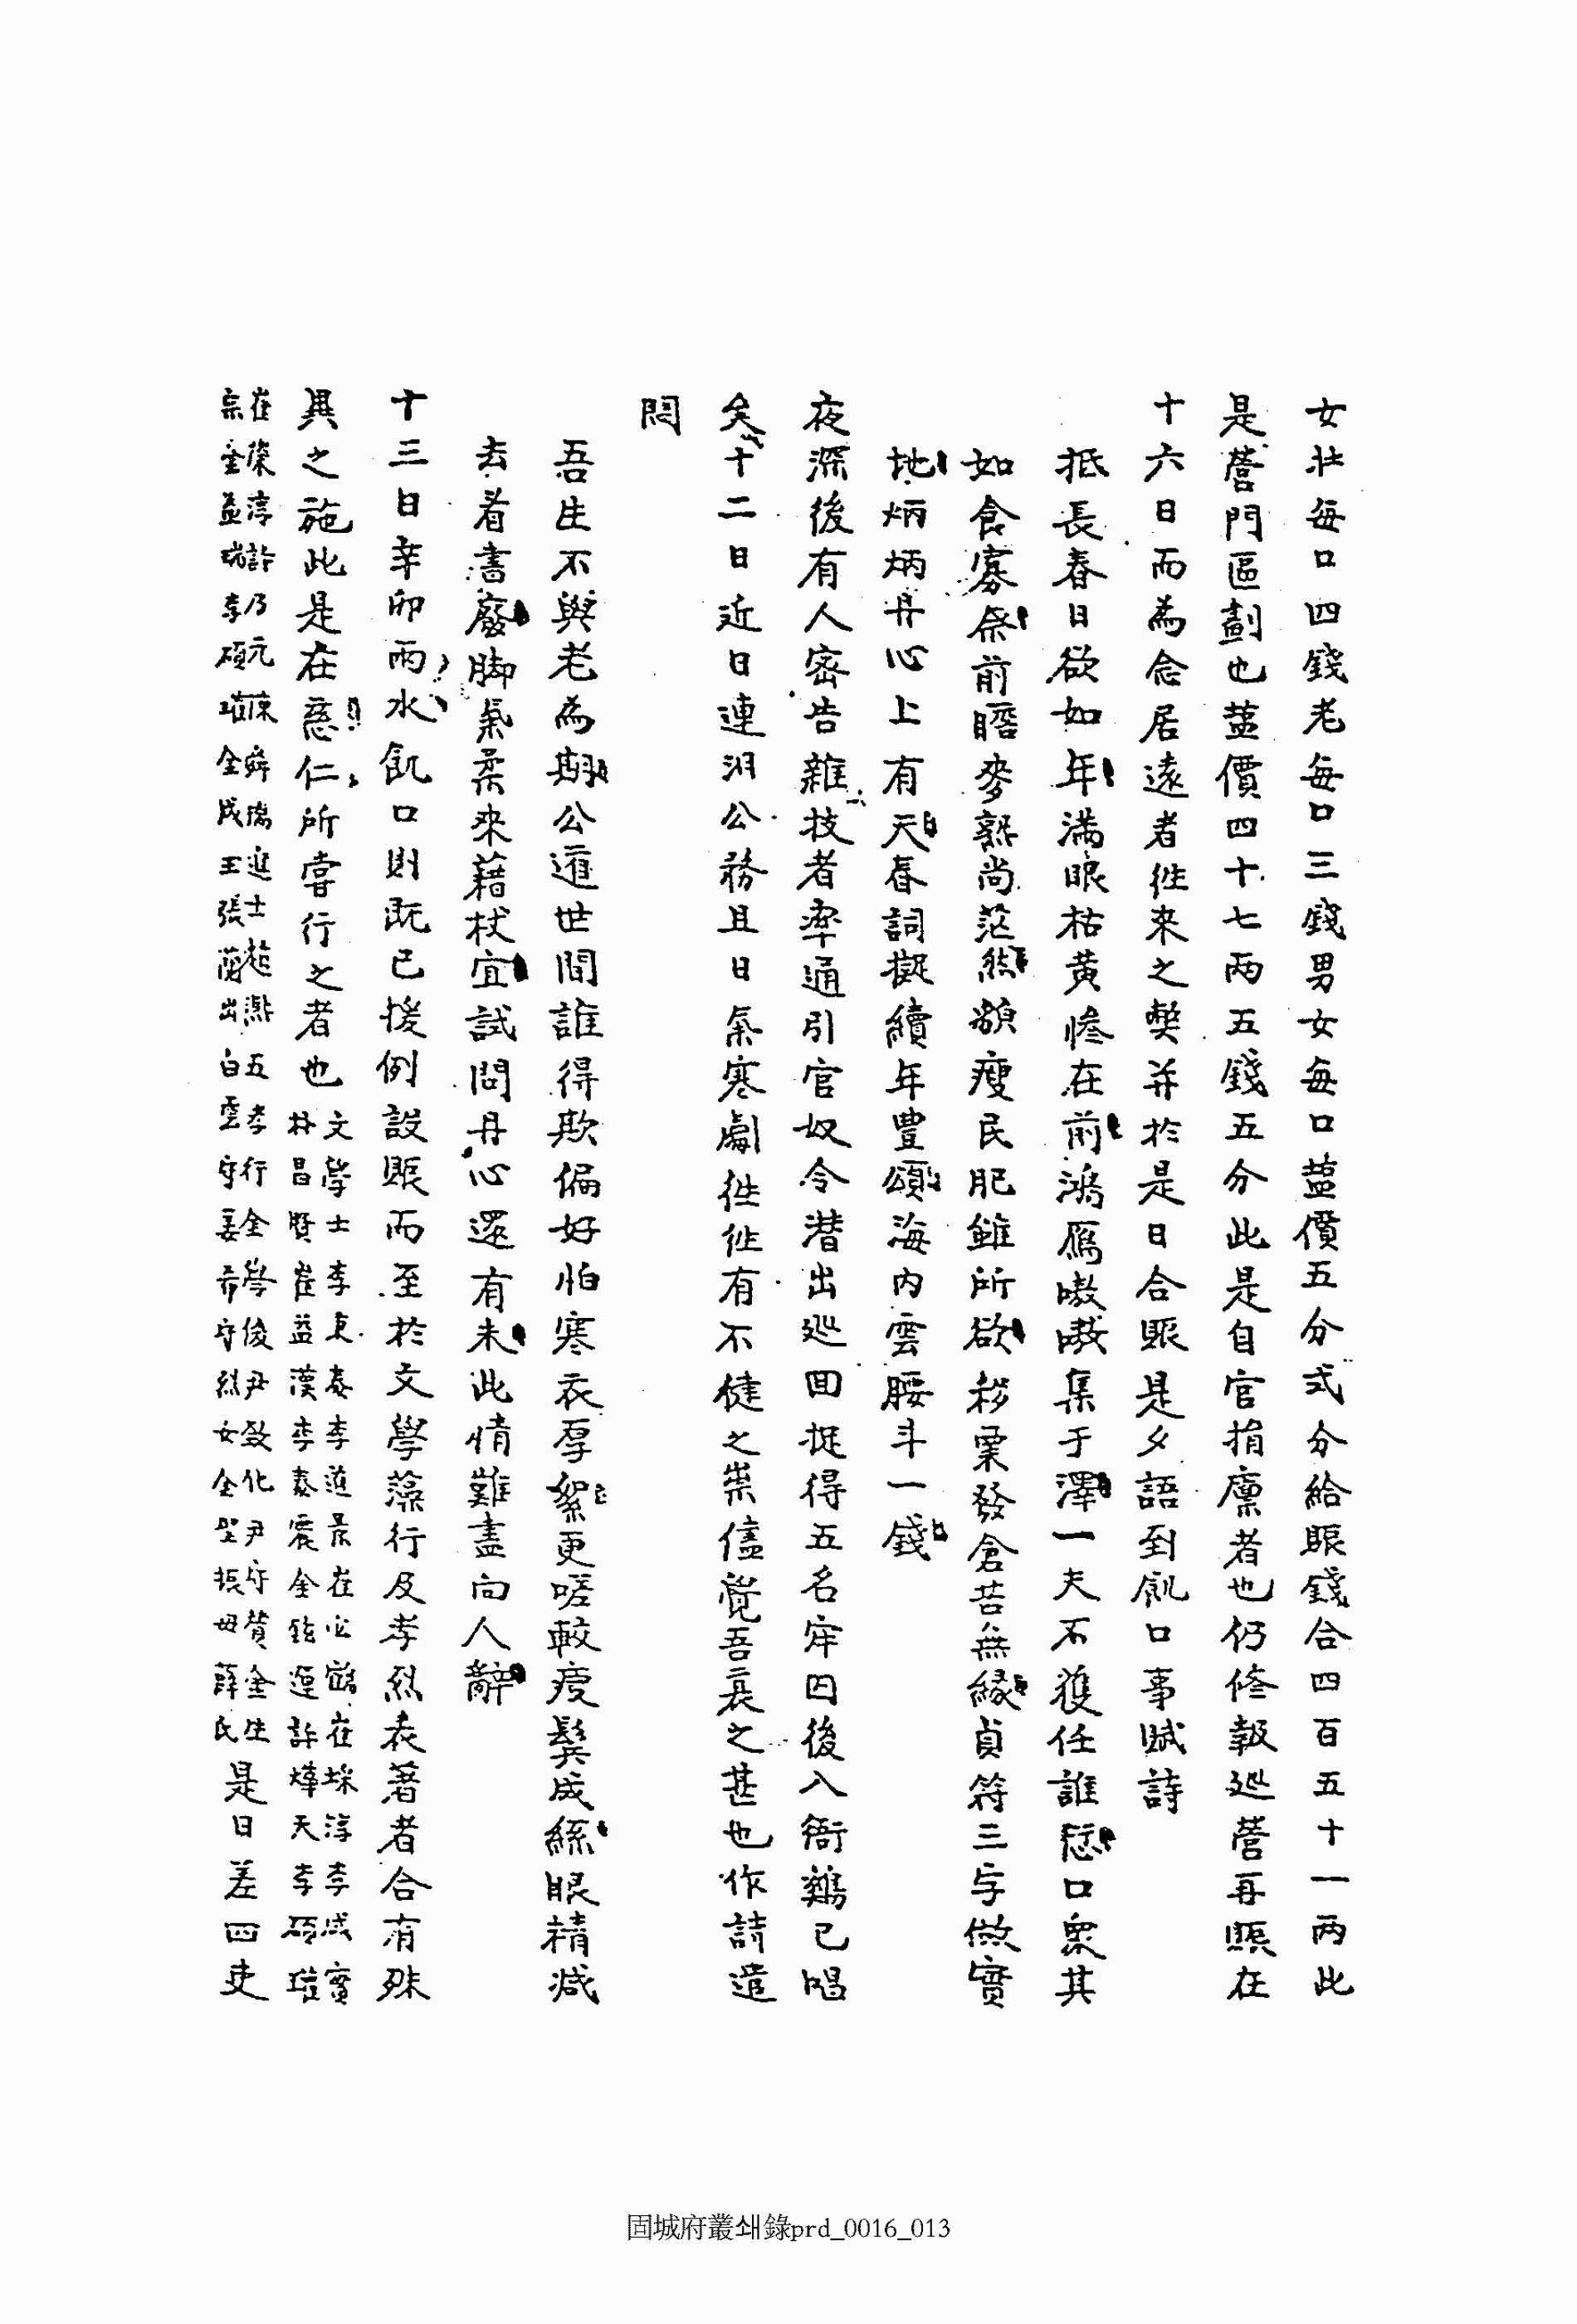 女壯每口四錢老每口三錢男女每口塩價五分式分給賑錢合四百五十一兩此
是營門區劃也塩價四十七兩五錢五分此是自官捐廩者也仍修報巡營再賑在
十六日而爲念居遠者徃來之獘并於是日合賑是夕語到飢口事賦詩
抵長春日欲如年滿眼枯黃慘在前鴻鴈嗷嗷集于澤一夫不獲任誰愆口衆其
如食寡祭前瞻麥熟尚茫然貌瘦民肥雖所欲移粟發倉苦無緣貞符三与做實
地炳炳丹心上有天春詞擬續年豊頌海內雲腰斗一錢
夜深後有人密告雜技者率通引官奴令潛出巡回捉得五名牢囚後入衙鷄已唱
矣十二日近日連汨公務且日氣寒劇徃徃有不健之祟儘覺吾衰之甚也作詩遣
悶
吾生不與老爲期公道世間誰得欺偏好怕寒衣厚絮更嗟較疫鬂成絲眼精减
去看書廢脚氣柔來藉杖宜試問丹心還有未此情難盡向人辭
十三日辛卯雨水飢口則旣已援例設賑而至於文學藻行及孝烈表著者合有殊
異之施此是在慈仁所當行之者也 文學士李東春李道景崔必鶴崔埰淳李成實
林昌賢崔益漢李泰震金鉉運許煒天李碩瓘
崔榮淳許乃元陳舜瑞進士趙 五孝行金學俊尹致化尹守贊金生
宗奎益瑞李碩瓘金成玉張蘭出白雲守姜希守烈女金聖振母薛氏 是日差四吏
固城府叢쇄錄prd_0016_013